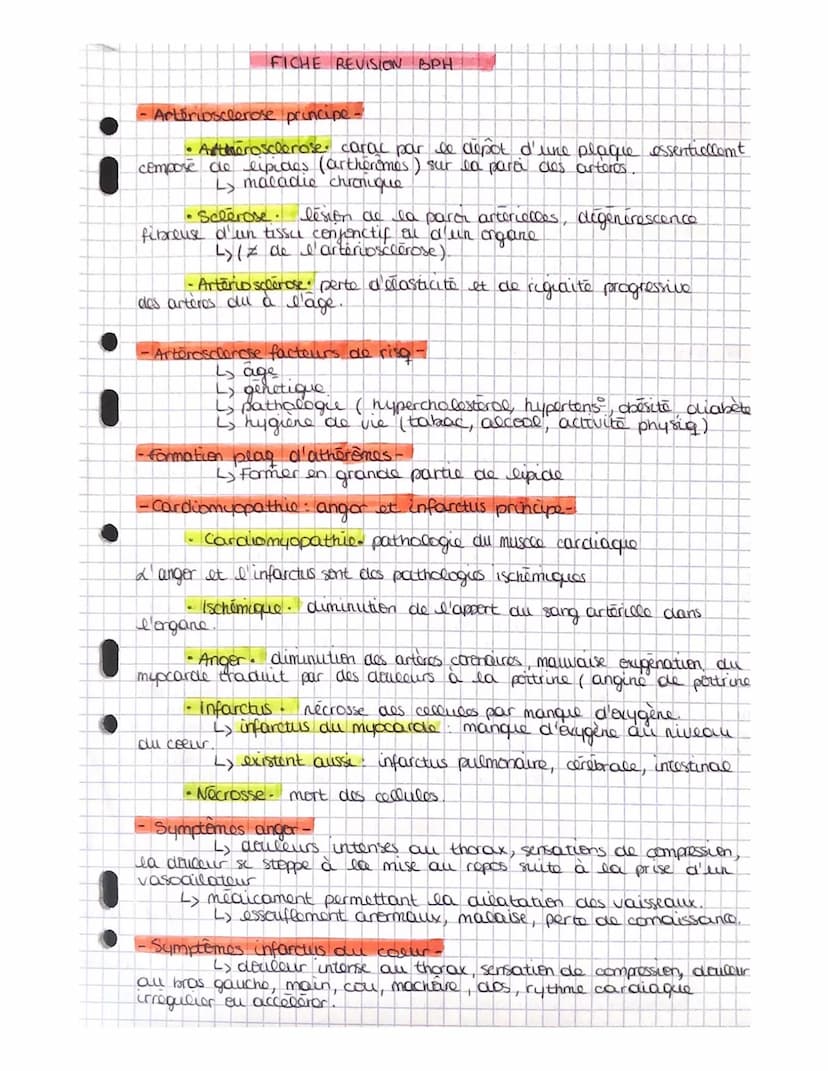 FICHE REVISION BPH
- Artériosclerose principe -
• Athérosclérose• carac par le dépôt d'une plaque essentiellemt
composé de lipides (arthérômes) sur la paroi des artères.
↳ maladie chronique
• Sclérose • lésion de la paroi artérielles, dégénirescence
fibreuse d'un tissu conjonctif ou d'un organe
↳ (≠ de l'artériosclérose).
- Artériosclérose• perte d'élasticité et de rigidité progressive
des artères du à l'âge.
- Artérosclerose facteurs de risq -
↳ âge
↳ génétique
↳ pathologie (hypercholestérol, hypertens°, obésité, diabète
↳ hygiène de vie (tabac, alcool, activité physiq)
- formation plaq d'athérômes -
↳ Former en grande partie de lipide
- Cardiomyopathie : angor et infarctus principe -
• Cardiomyopathie• pathologie du muscle cardiaque
L'angor et l'infarctus sont des pathologies ischémiques
• Ischémique • diminution de l'apport du sang artérielle dans
l'organe.
• Angor • diminution des artères coronaires, mauvaise oxygénation du
myocarde traduit par des douleurs à la poitrine (angine de poitrine
• infarctus • nécrosse des cellules par manque d'oxygène.
↳ infarctus du myocarde : manque d'oxygène au niveau
du coeur.
↳ existent aussi : infarctus pulmonaire, cérébrale, intestinal
• Nécrosse • mort des cellules.
- Symptômes angor -
↳ douleurs intenses au thorax, sensations de compression,
la douleur se stoppe à la mise au repos suite à la prise d'un
vasodilateur
↳ médicament permettant la dilatation des vaisseaux.
↳ essouflement anormaux, malaise, perte de connaissance.
- Symptômes infarctus du coeur -
↳ douleur intense au thorax, sensation de compression, douleur
au bras gauche, main, cou, machôire, dos, rythme cardiaque
irrégulier ou accélérer.